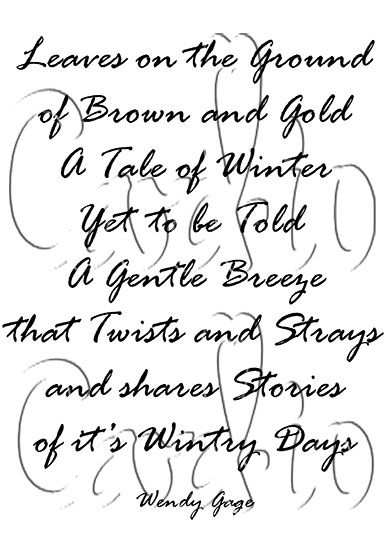 Leaves on the Ground
of Brown and Gold
A Tale of Winter
Yet to be Told
A Gentle Breeze
that Twists and Strays
and shares Stories
of it's Wintry Days
Wendy Gage